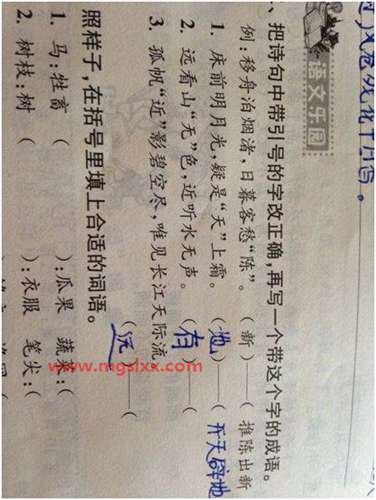 语文乐园
一、把诗句中带引号的字改正确，再写一个带这个字的成语。
例：移舟泊烟渚，日暮客愁“陈”。（新） 推陈出新
1. 床前明月光，疑是“天”上霜。（地）——（开天辟地
2. 远看山“无”色，近听水无声。（有）——（
3. 孤帆“近”影碧空尽，唯见长江天际流。（远）——（
照样子，在括号里填上合适的词语。
1. 马：牲畜 （ ）：瓜果 蔬菜：（
2. 树枝：树 （ ）：衣服 笔尖：（
www.mgslxx.com